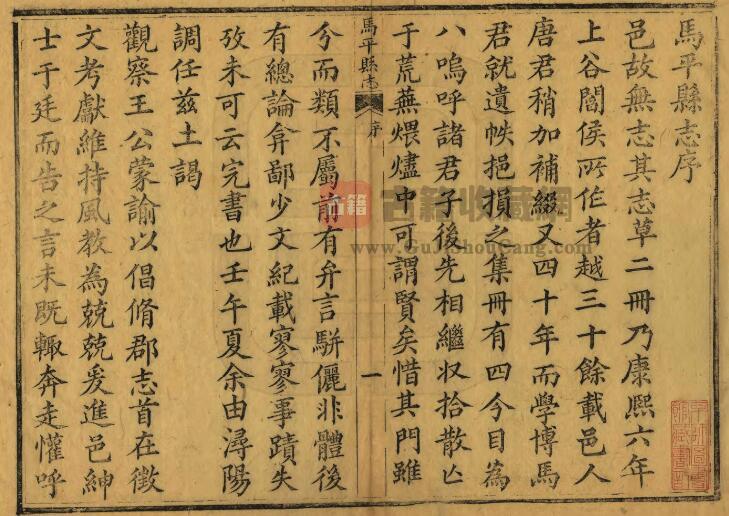 馬平縣志序
邑故無志其志草二冊乃康熙六年
上谷閻侯所作者越三十餘載邑人
唐君稍加補綴又四十年而學博馬
君就遺帙挹損之集冊有四今目為
八嗚呼諸君子後先相繼収拾散亾
于荒蕪煨燼中可謂賢矣惜其門雖
馬平縣志
序
一
分而類不屬前有弁言駢儷非體後
有總論弇鄙少文紀載寥寥事蹟失
攷未可云完書也壬午夏余由潯陽
調任茲土謁
觀察王公蒙諭以倡脩郡志首在徵
文考獻維持風教為兢兢爰進邑紳
士于廷而告之言未既輙奔走懽呼
古籍
古籍收藏網
www.GuJiShouCang.com